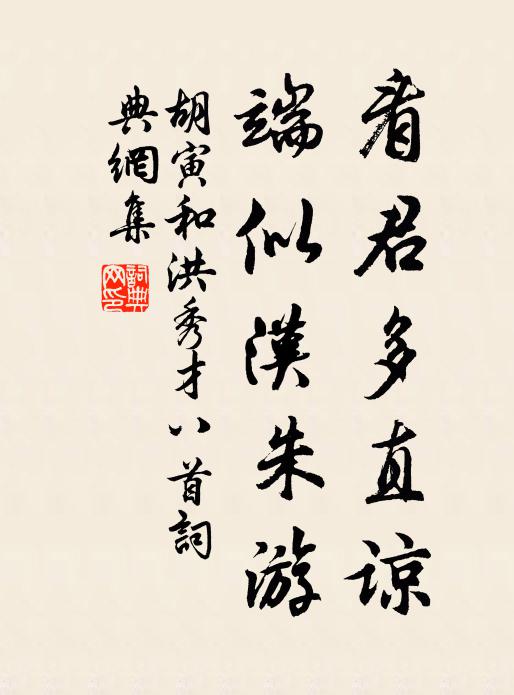 看君多直谅
端似漢朱游
胡寅和洪秀才八首詞
典網集
詞典
网印